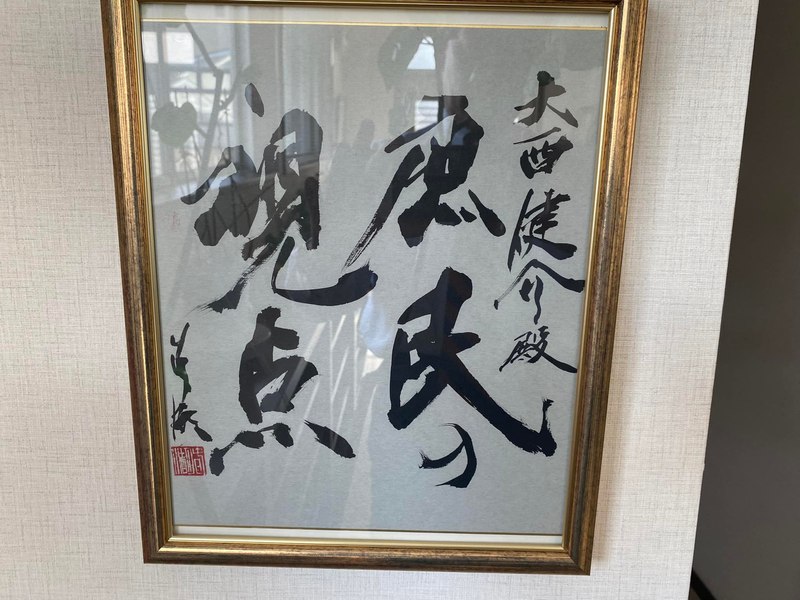 大西健介殿
庶民の
視点